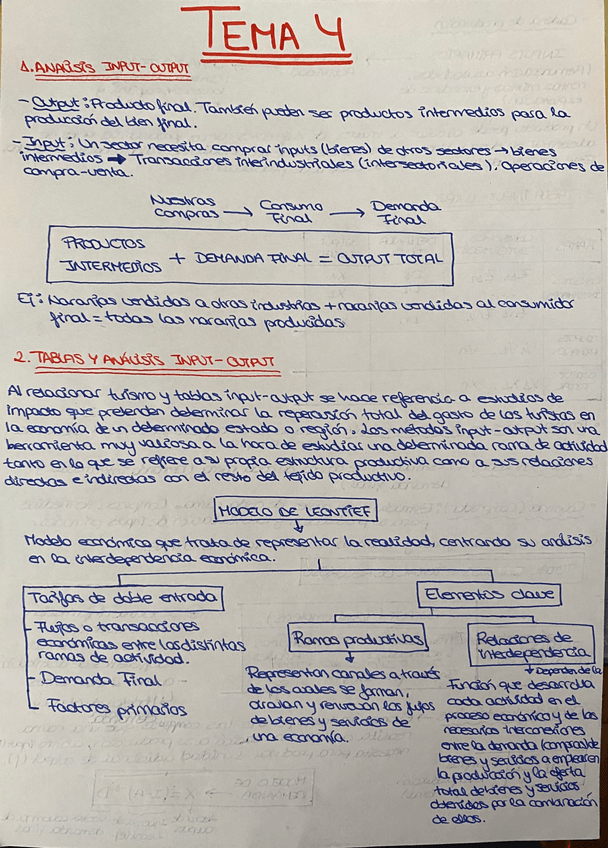 TEMA 4
1. ANÁLISIS INPUT-OUTPUT
- Output: Producto final. También pueden ser productos intermedios para la
producción del bien final.
- Input: Un sector necesita comprar inputs (bienes) de otros sectores → bienes
intermedios → Transacciones interindustriales (intersectoriales). Operaciones de
compra-venta.
Nuestras compras → Consumo Final → Demanda Final
PRODUCTOS INTERMEDIOS + DEMANDA FINAL = OUTPUT TOTAL
Ej: Naranjas vendidas a otras industrias + naranjas vendidas al consumidor
final = todas las naranjas producidas
2. TABLAS Y ANÁLISIS INPUT-OUTPUT
Al relacionar turismo y tablas input-output se hace referencia a estudios de
impacto que pretenden determinar la repercusión total del gasto de los turistas en
la economía de un determinado estado o región. Los métodos input-output son una
herramienta muy valiosa a la hora de estudiar una determinada rama de actividad
tanto en lo que se refiere a su propia estructura productiva como a sus relaciones
directas e indirectas con el resto del tejido productivo.
MODELO DE LEONTIEF
Modelo económico que trata de representar la realidad, centrando su análisis
en la interdependencia económica.
Tarifas de doble entrada
- Flujos o transacciones
económicas entre las distintas
ramas de actividad.
- Demanda Final
- Factores primarios
Elementos clave
Ramas productivas
Representan canales a través
de los cuales se forman,
circulan y renuevan los flujos
de bienes y servicios de
una economía.
Relaciones de
interdependencia
Dependen de la
Función que desarrolla
cada actividad en el
proceso económico y de las
necesarias interconexiones
entre la demanda (compras) de
bienes y servicios a emplear en
la producción y la oferta
total de bienes y servicios
obtenidos por la combinación
de ellos.